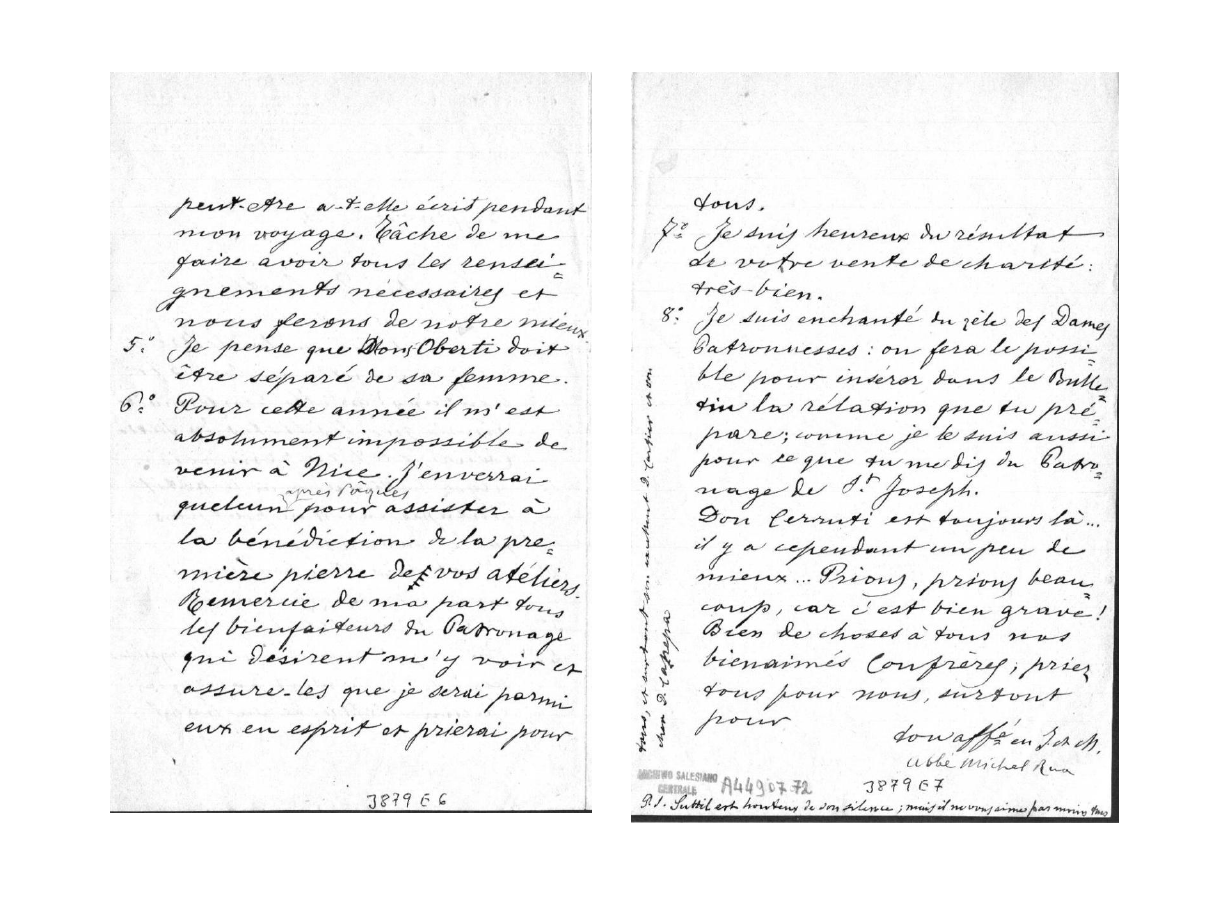 peut-etre a-t-elle écrit pendant
mon voyage. Tâche de me
faire avoir tous les rensei=
gnements nécessaires et
nous ferons de notre mieux
5.° Je pense que Mons Oberti doit
être séparé de sa femme.
6.° Pour cette année il m'est
absolument impossible de
venir à Nice. J'enverrai
après Pâques
quelcun pour assister à
la bénédiction de la pre=
mière pierre des vos atéliers.
Remercie de ma part tous
les bienfaiteurs du Patronage
qui désirent m'y voir et
assure-les que je serai parmi
eux en esprit et prierai pour
3879 E 6
tous.
7.° Je suis heureux du résultat
de votre vente de charité:
très-bien.
8.° Je suis enchanté du zéle des Dames
Patronnesses: on fera le possi=
ble pour insérer dans le Bulle=
tin la rélation que tu pré=
pare; comme je le suis aussi
pour ce que tu me dis du Patro=
nage de S.t Joseph.
Don Cerruti est toujours là...
il y a cependant un peu de
mieux... Prions, prions beau=
coup, car c'est bien grave!
Bien de choses à tous nos
bienaimés Confrères; priez
tous pour nous, surtout
pour
ton affé en J. et M.
Abbé Michel Rua
tous, et surtout D. Cartier et son
cher D.
ARCHIVIO SALESIANO
CENTRALE
A4490772
3879 E 7
P.S. est honteux de son silence; mais il ne vous aime pas moins tous